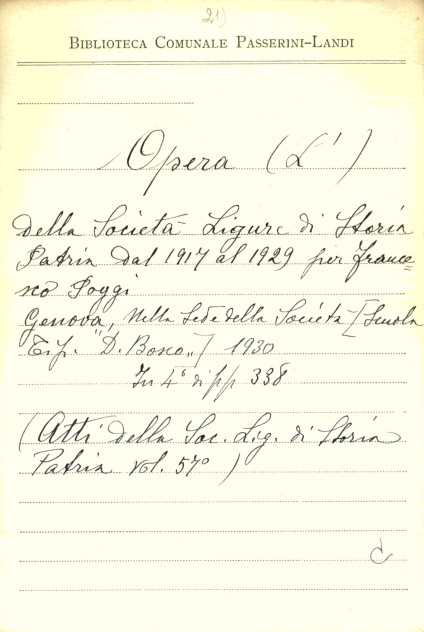 21)
BIBLIOTECA COMUNALE PASSERINI-LANDI
Opera (L')
della Società Ligure di Storia
Patria dal 1917 al 1929 per France=
sco Poggi
Genova, nella Sede della Società [Scuola
Tip. "D. Bosco"] 1930
In 4° di pp 338
(Atti della Soc. Lig. di Storia
Patria vol. 57°)